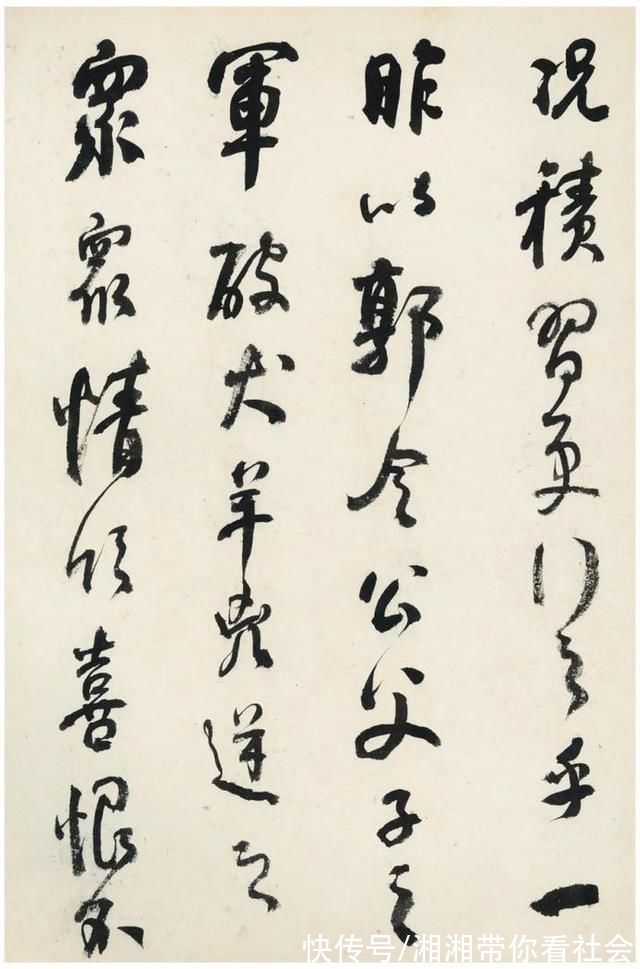 況積習更行之乎一
昨以郭令公父子之
軍破犬羊兇逆之
衆衆情欣喜恨不
快传号/湘湘带你看社会